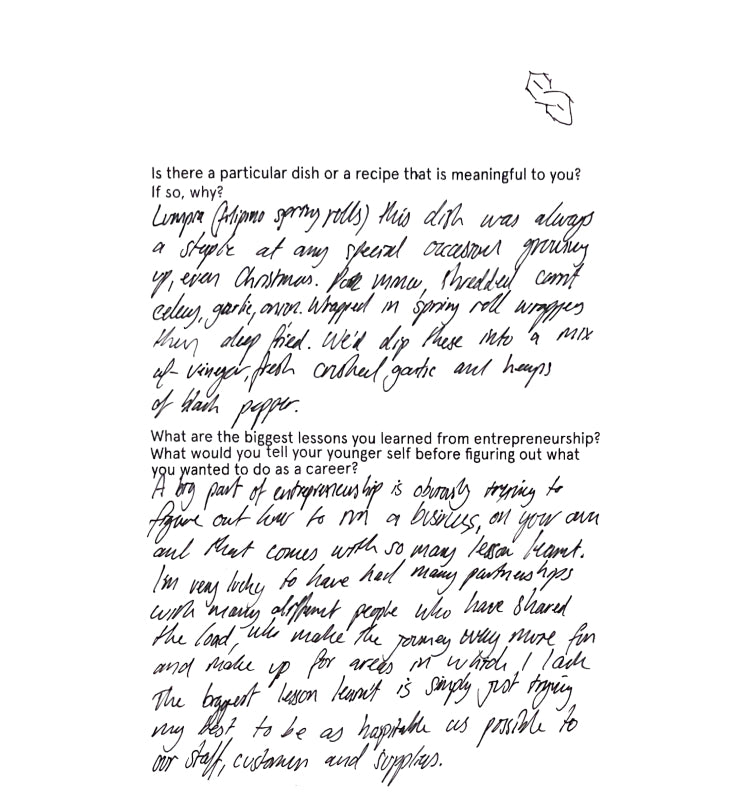 Is there a particular dish or a recipe that is meaningful to you?
If so, why?
Lumpia (filipino spring rolls) this dish was always
a staple at any special occasion growing
up, even Christmas. Pork mince, shredded carrot
celery, garlic, onion. Wrapped in spring roll wrappers
then deep fried. We'd dip these into a mix
of vinegar, fresh crushed garlic and heaps
of black pepper.
What are the biggest lessons you learned from entrepreneurship?
What would you tell your younger self before figuring out what
you wanted to do as a career?
A big part of entrepreneurship is obviously trying to
figure out how to run a business, on your own
and that comes with so many lesson learnt.
I'm very lucky to have had many partnerships
with many different people who have shared
the load, who make the journey even more fun
and make up for areas in which I lack
The biggest lesson learnt is simply just trying
my best to be as hospitable as possible to
our staff, customers and suppliers.